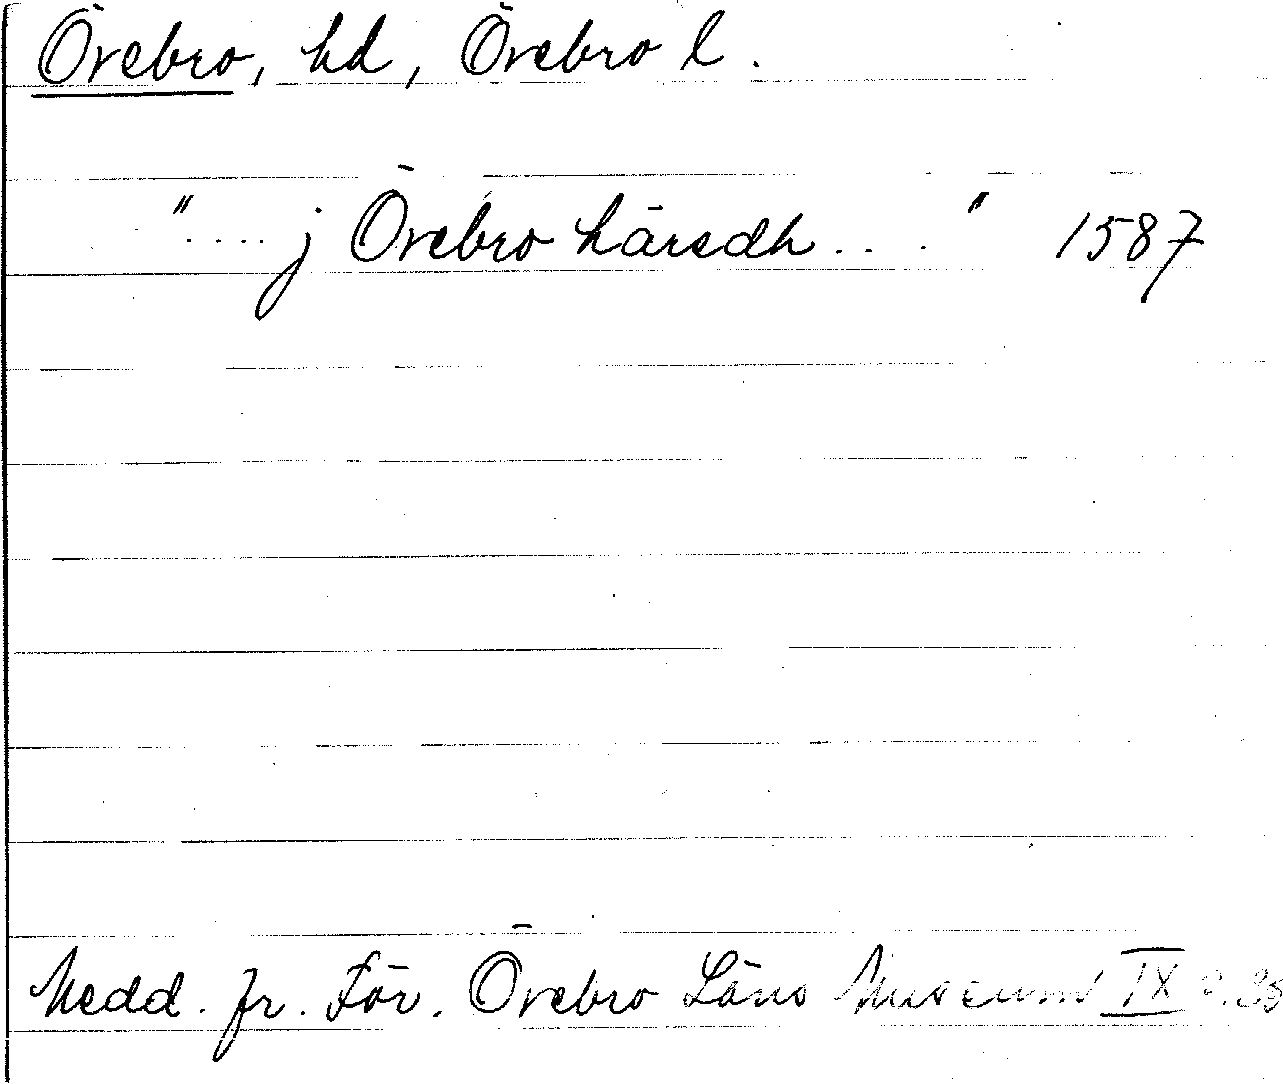 Örebro, hd, Örebro l.
".... j Örebro häredh...." 1587
Medd. fr. För. Örebro Läns Museum IX s.